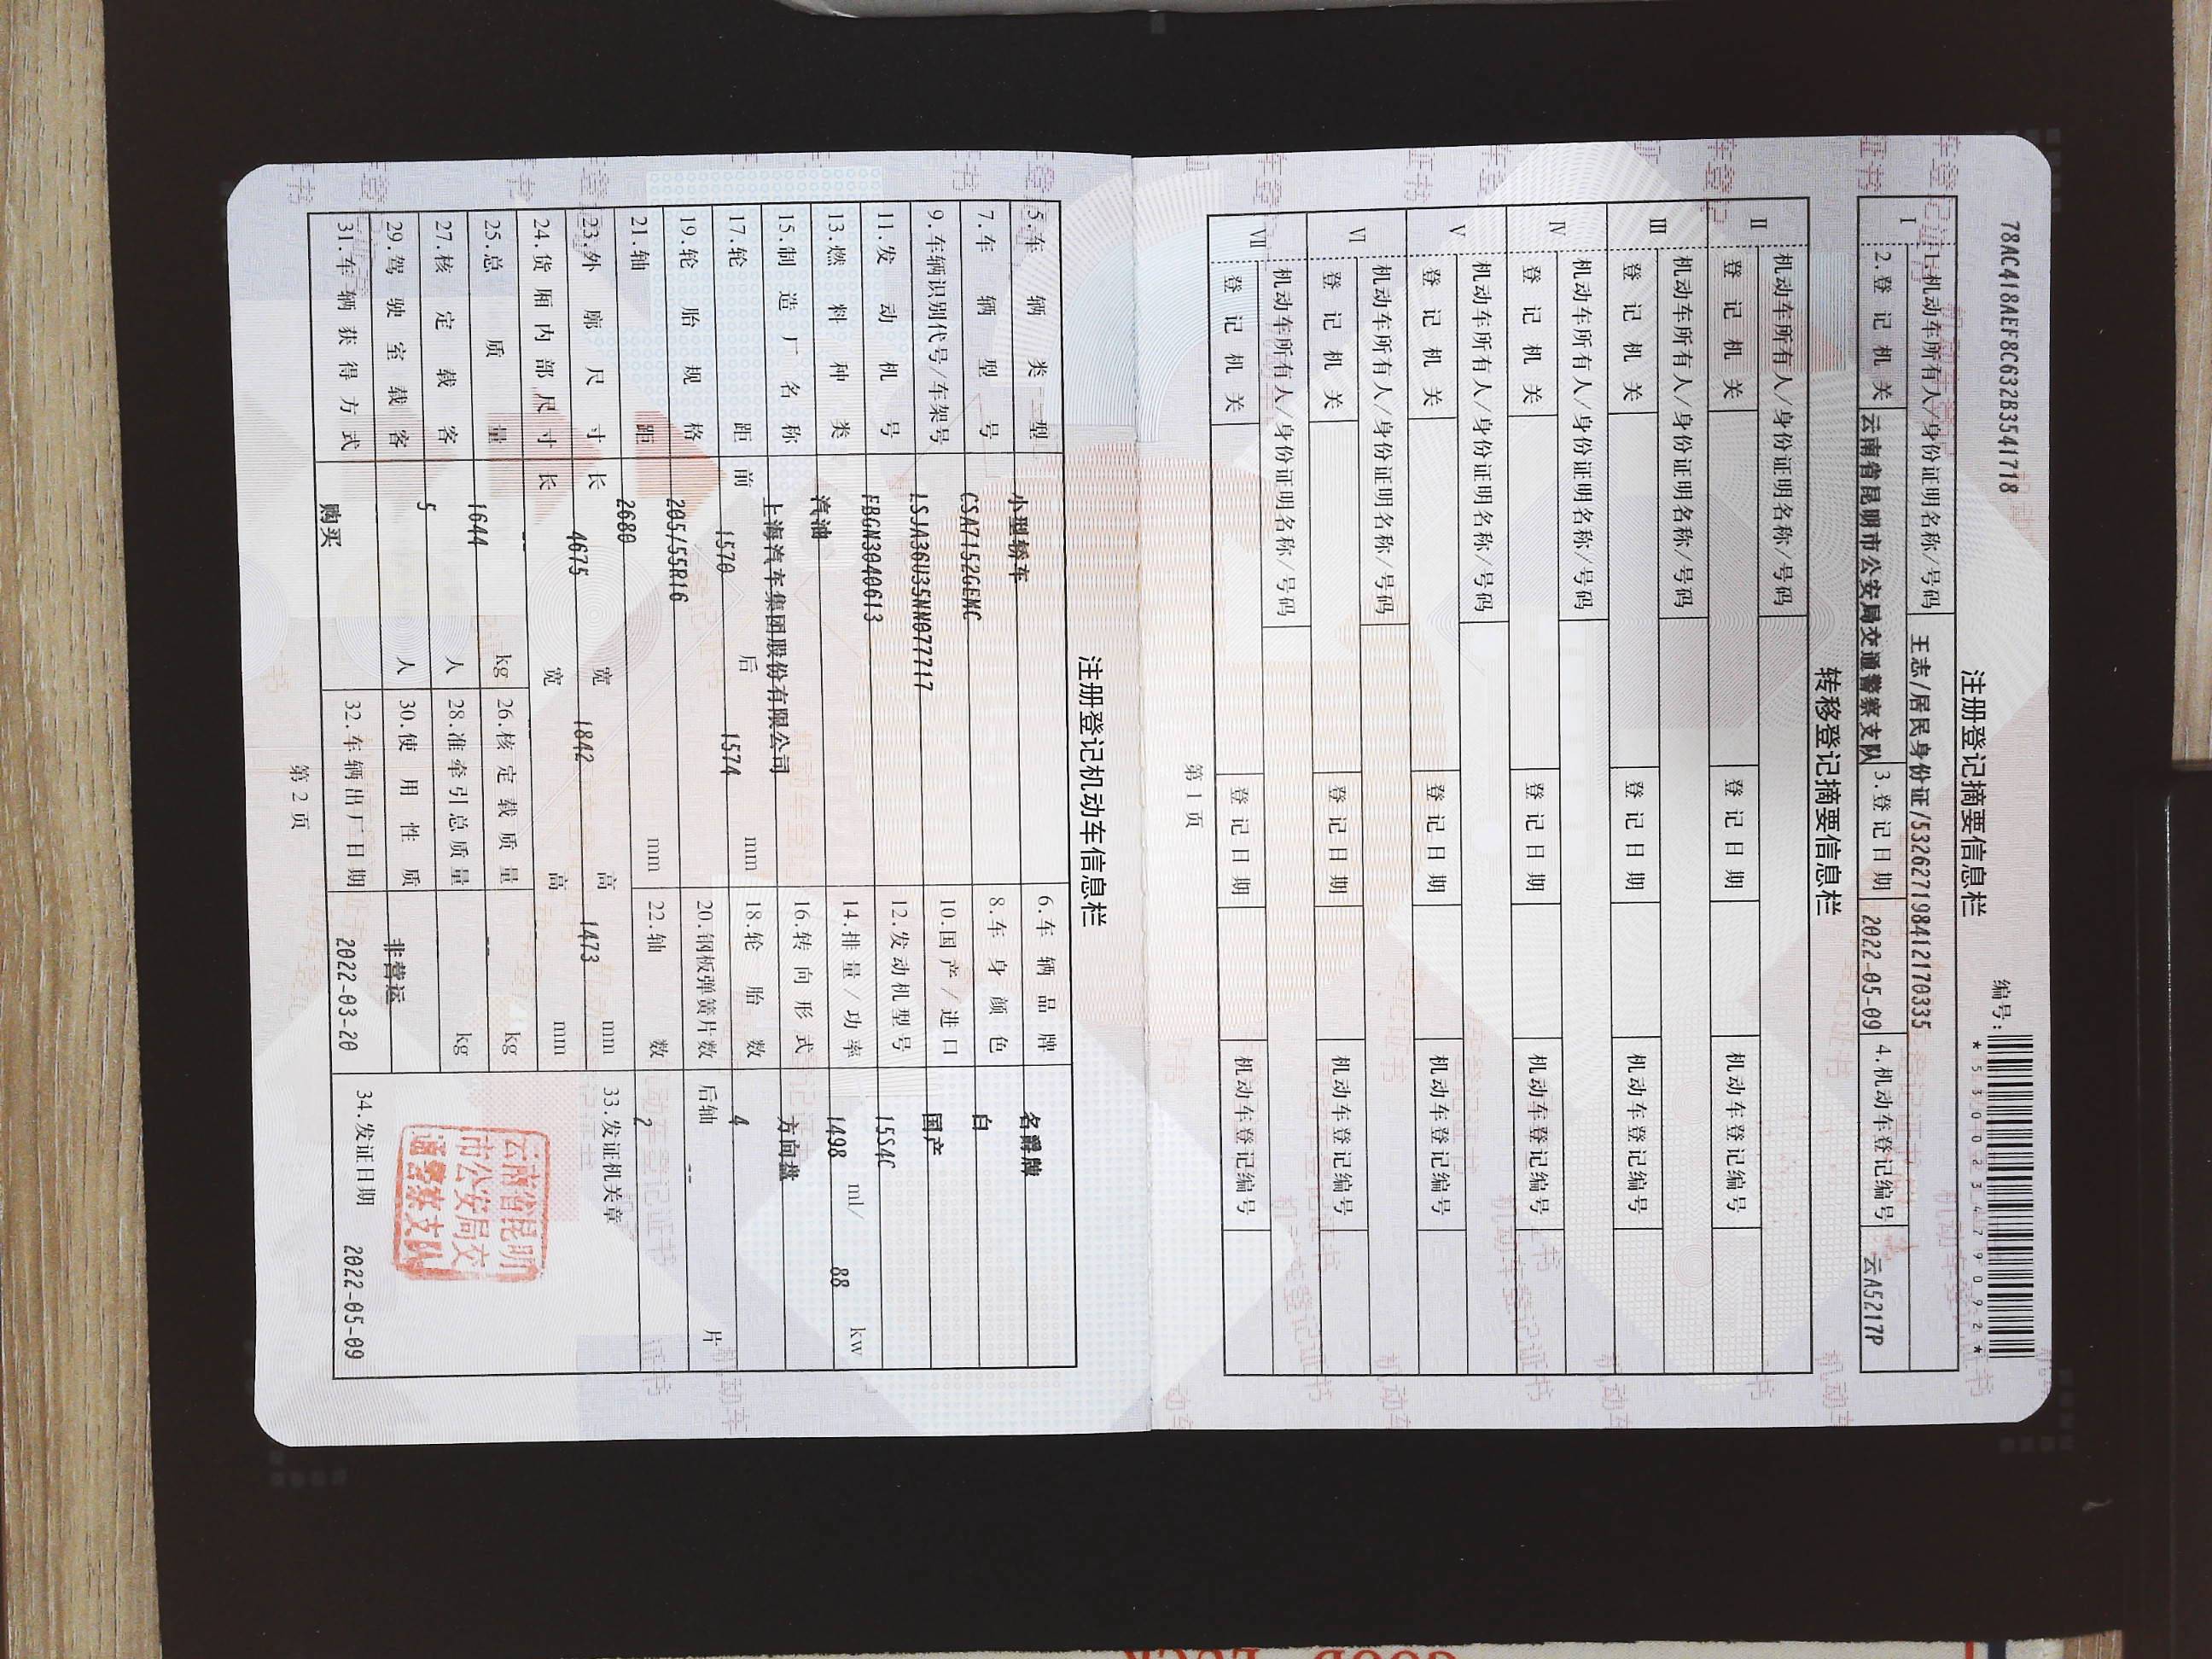 78AC418AEF8C632B3541718
编号:
*530023479092*
注册登记摘要信息栏
I 1.机动车所有人/身份证明名称/号码 王志/居民身份证/532627198412170335
2.登记机关 云南省昆明市公安局交通警察支队 3.登记日期 2022-05-09 4.机动车登记编号 云A5217P
转移登记摘要信息栏
II 机动车所有人/身份证明名称/号码
登记机关 登记日期 机动车登记编号
III 机动车所有人/身份证明名称/号码
登记机关 登记日期 机动车登记编号
IV 机动车所有人/身份证明名称/号码
登记机关 登记日期 机动车登记编号
V 机动车所有人/身份证明名称/号码
登记机关 登记日期 机动车登记编号
VI 机动车所有人/身份证明名称/号码
登记机关 登记日期 机动车登记编号
VII 机动车所有人/身份证明名称/号码
登记机关 登记日期 机动车登记编号
第1页
注册登记机动车信息栏
5.车辆类型 小型轿车 6.车辆品牌 名爵牌
7.车辆型号 CSA7152GEMC 8.车身颜色 白
9.车辆识别代号/车架号 LSJA36U35NN077717 10.国产/进口 国产
11.发动机号 FBGN3040613 12.发动机型号 15S4C
13.燃料种类 汽油 14.排量/功率 1498 ml/ 88 kw
15.制造厂名称 上海汽车集团股份有限公司 16.转向形式 方向盘
17.轮距 前 1570 后 1574 mm 18.轮胎数 4
19.轮胎规格 205/55R16 20.钢板弹簧片数 后轴 -- 片
21.轴距 2680 mm 22.轴数 2
23.外廓尺寸 长 4675 宽 1842 高 1473 mm 33.发证机关章
24.货厢内部尺寸 长 -- 宽 -- 高 -- mm
25.总质量 1644 kg 26.核定载质量 -- kg
27.核定载客 5 人 28.准牵引总质量 kg
29.驾驶室载客 人 30.使用性质 非营运
云南省昆明
市公安局交
通警察支队
31.车辆获得方式 购买 32.车辆出厂日期 2022-03-20 34.发证日期 2022-05-09
第2页